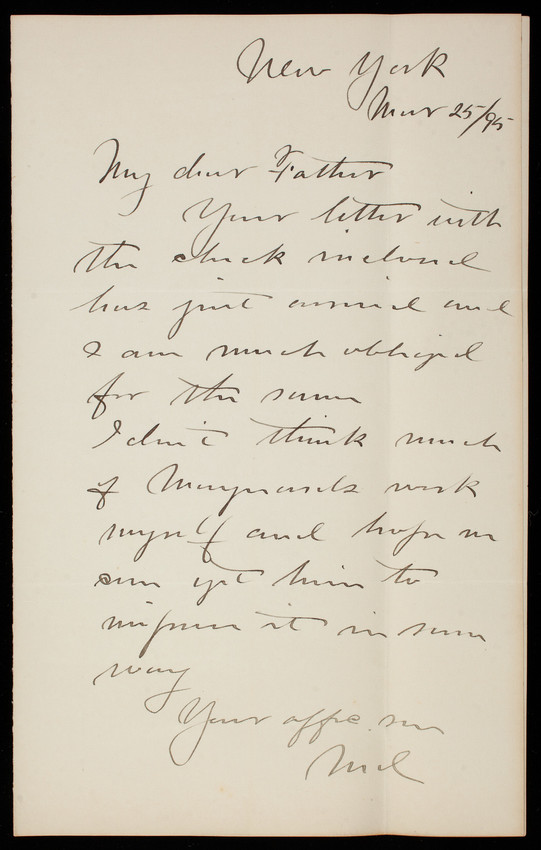 New York
Mar 25/95
My dear Father
Your letter with
the check inclosed
has just arrived and
I am much obliged
for the same
I don't think much
of Maynards work
myself and hope we
can get him to
improve it in some
way
Your affec. son
Ned